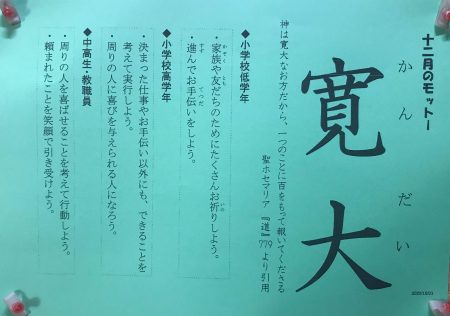 十二月のモットー
かんだい
寛大
神は寛大なお方だから、一つのことに百をもって報いてくださる
聖ホセマリア 『道』779より引用
◆小学校低学年
・家族や友だちのためにたくさんお祈りしよう。
・進んでお手伝いをしよう。
◆小学校高学年
・決まった仕事やお手伝い以外にも、できることを
考えて実行しよう。
・周りの人に喜びを与えられる人になろう。
◆中高生・教職員
・周りの人を喜ばせることを考えて行動しよう。
・頼まれたことを笑顔で引き受けよう。